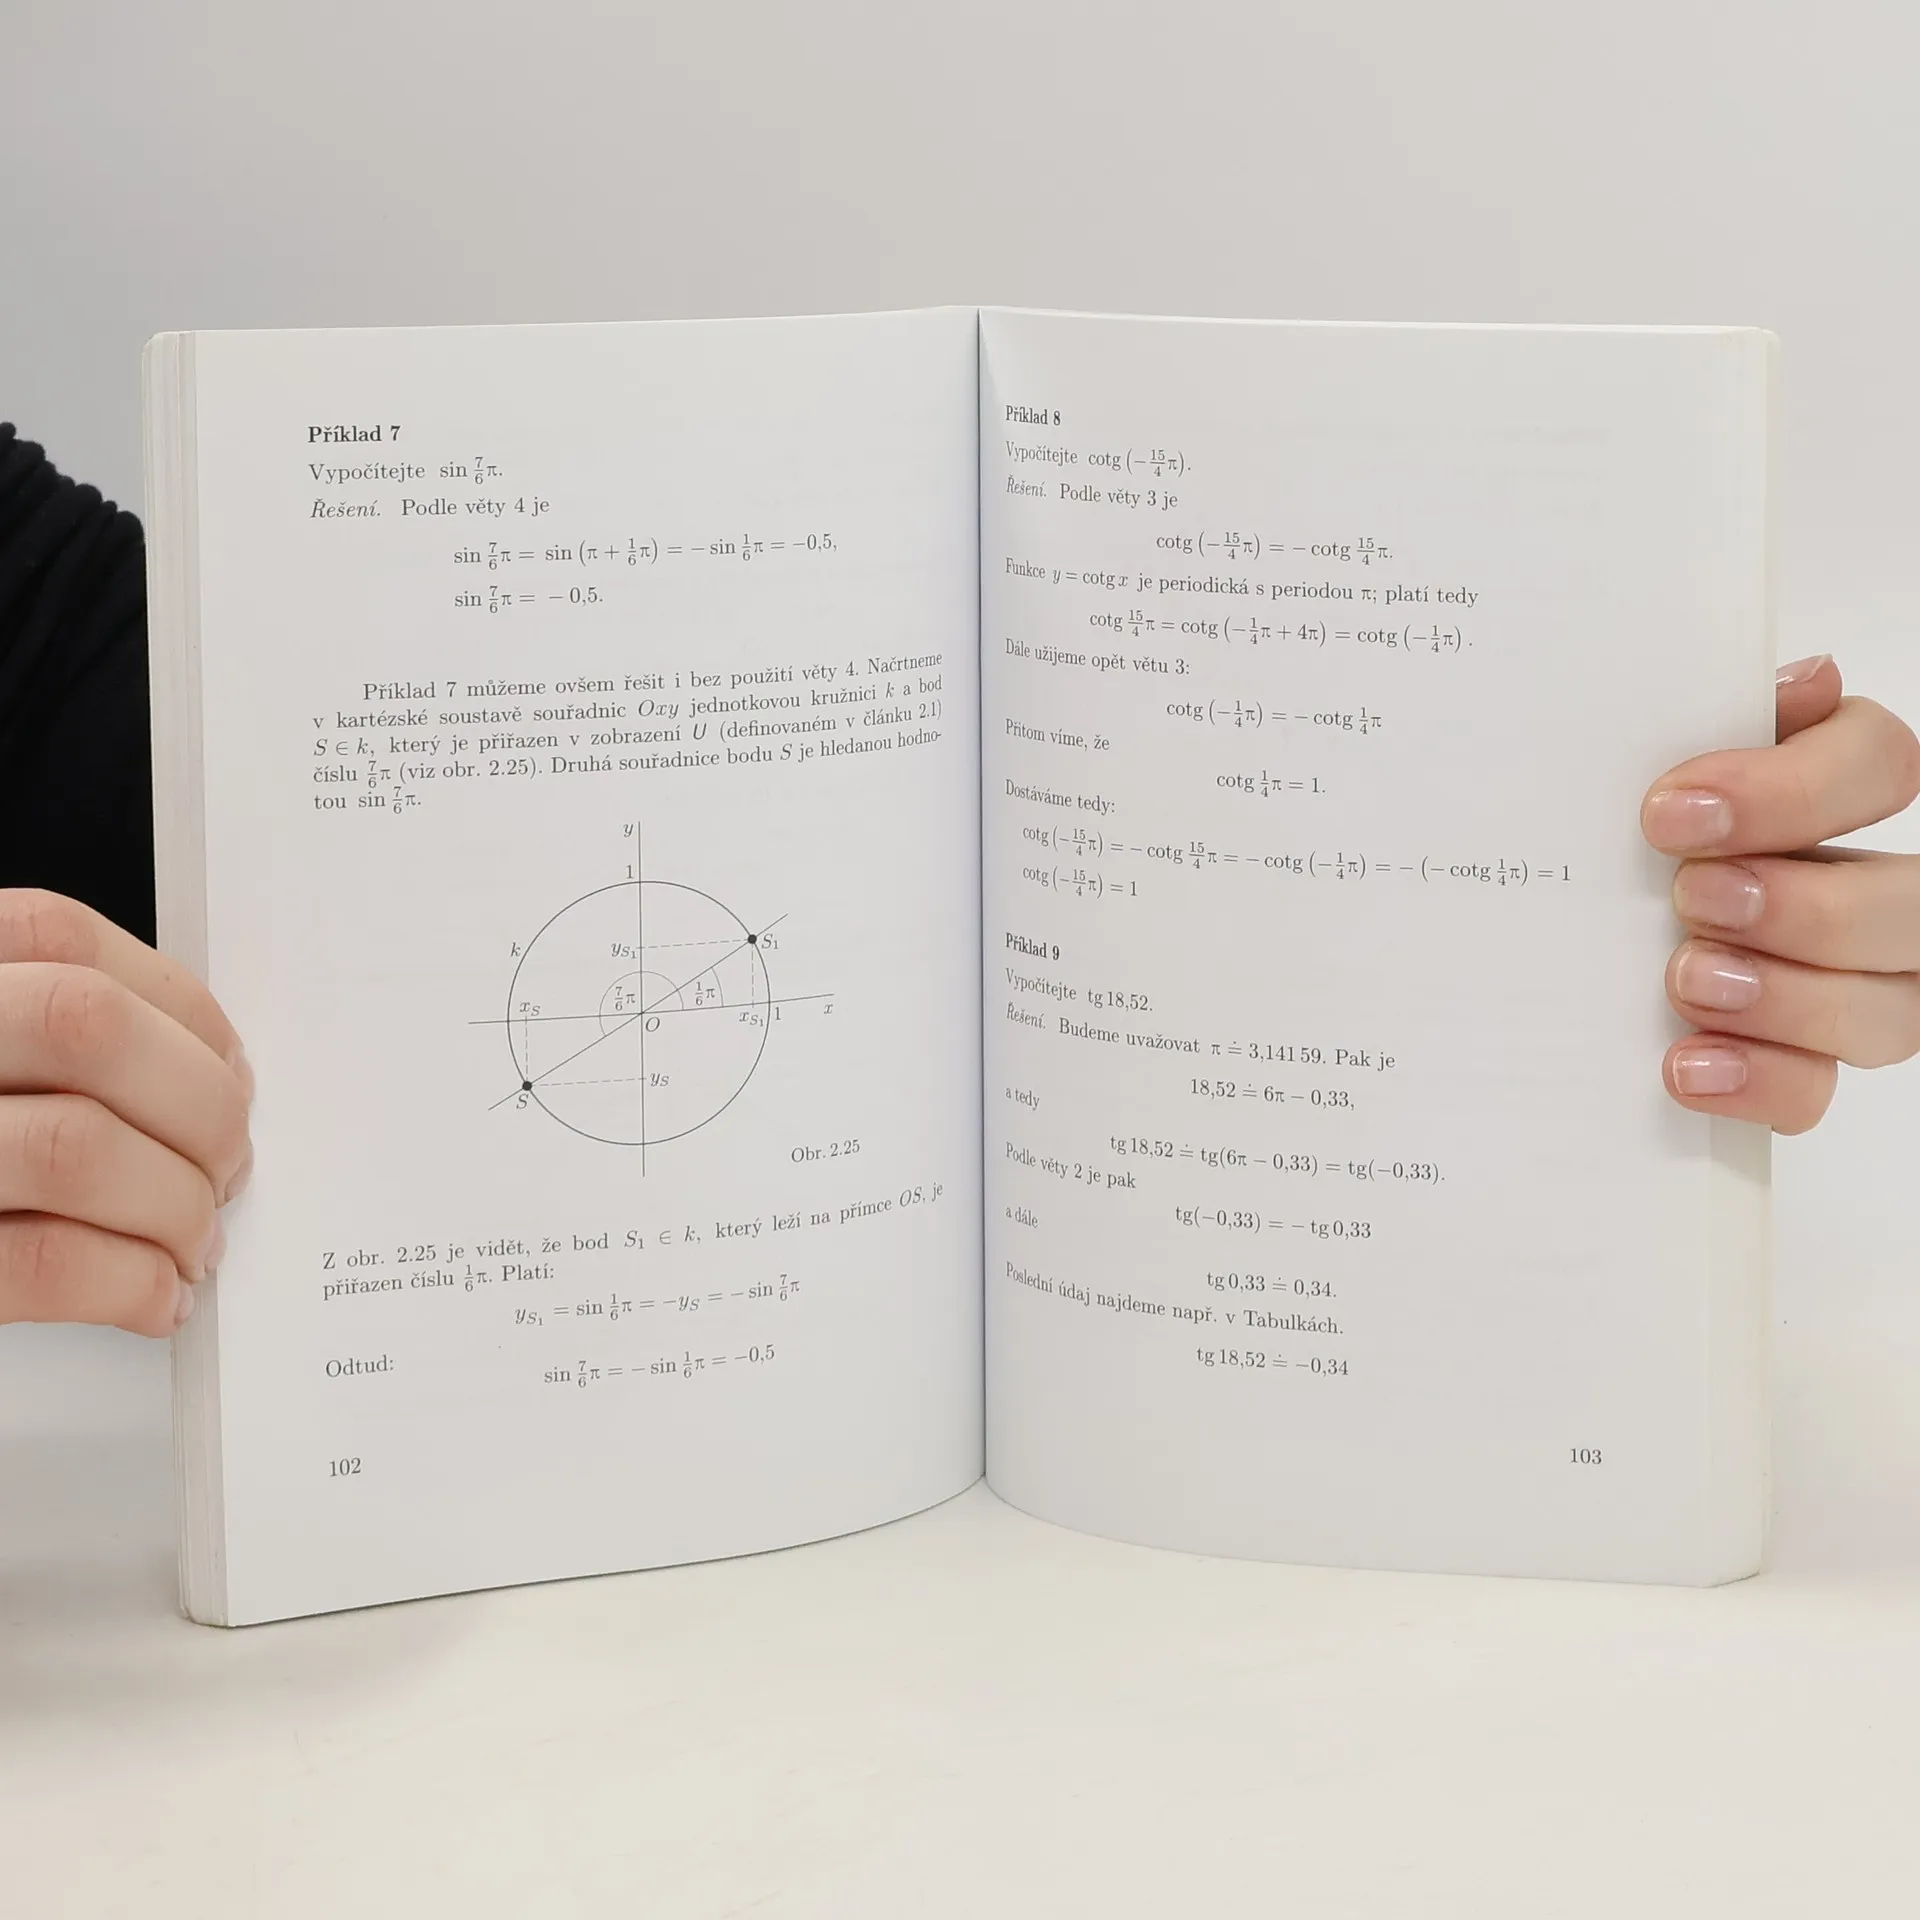 Příklad 7
Vypočítejte sin 7/6 π.
Řešení. Podle věty 4 je
sin 7/6 π = sin (π + 1/6 π) = − sin 1/6 π = −0,5,
sin 7/6 π = − 0,5.
Příklad 7 můžeme ovšem řešit i bez použití věty 4. Načrtneme
v kartézské soustavě souřadnic Oxy jednotkovou kružnici k a bod
S ∈ k, který je přiřazen v zobrazení U (definovaném v článku 2.1)
číslu 7/6 π (viz obr. 2.25). Druhá souřadnice bodu S je hledanou hodno-
tou sin 7/6 π.
y
1
k
y_{S_1}
S_1
7/6 π
1/6 π
x_S
O
x_{S_1}
1
x
y_S
S
Obr. 2.25
Z obr. 2.25 je vidět, že bod S_1 ∈ k, který leží na přímce OS, je
přiřazen číslu 1/6 π. Platí:
y_{S_1} = sin 1/6 π = −y_S = − sin 7/6 π
Odtud:
sin 7/6 π = − sin 1/6 π = −0,5
102
Příklad 8
Vypočítejte cotg (−15/4 π).
Řešení. Podle věty 3 je
cotg (−15/4 π) = − cotg 15/4 π.
Funkce y = cotg x je periodická s periodou π; platí tedy
cotg 15/4 π = cotg (−1/4 π + 4π) = cotg (−1/4 π).
Dále užijeme opět větu 3:
cotg (−1/4 π) = − cotg 1/4 π
Přitom víme, že
cotg 1/4 π = 1.
Dostáváme tedy:
cotg (−15/4 π) = − cotg 15/4 π = − cotg (−1/4 π) = − (− cotg 1/4 π) = 1
cotg (−15/4 π) = 1
Příklad 9
Vypočítejte tg 18,52.
Řešení. Budeme uvažovat π ≐ 3,141 59. Pak je
18,52 ≐ 6π − 0,33,
a tedy
tg 18,52 ≐ tg(6π − 0,33) = tg(−0,33).
Podle věty 2 je pak
tg(−0,33) = − tg 0,33
a dále
tg 0,33 ≐ 0,34.
Poslední údaj najdeme např. v Tabulkách.
tg 18,52 ≐ −0,34
103